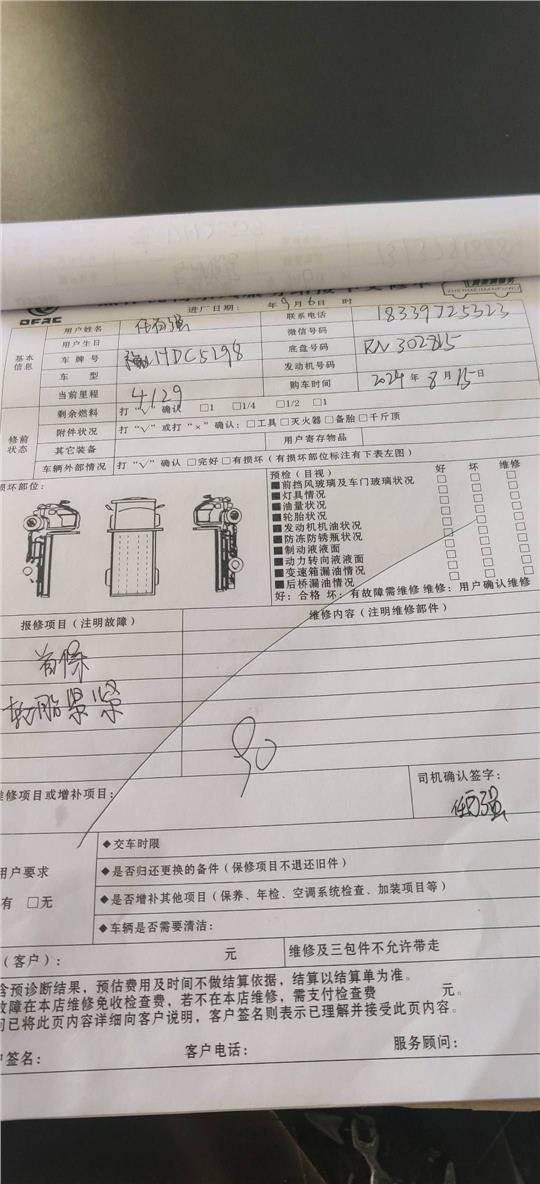 DFAC
进厂日期： 年9月6日 时
基本信息
用户姓名
联系电话 18339725323
用户生日
微信号码
车牌号 HDC5198
底盘号码 RN302815
车型
发动机号码
当前里程 4129
购车时间 2024年8月15日
修前状态
剩余燃料 打“√”确认 □1 □1/4 □1/2 □1
附件状况 打“√”或打“×”确认：□工具□灭火器□备胎□千斤顶
其它装备
用户寄存物品
车辆外部情况 打“√”确认 □完好□有损坏（有损坏部位标注有下表左图）
损坏部位：
预检（目视） 好 坏 维修
■前挡风玻璃及车门玻璃状况 □ □ □
■灯具情况 □ □ □
■油量状况 □ □ □
■轮胎状况 □ □ □
■发动机机油状况 □ □ □
■防冻防锈瓶状况 □ □ □
■制动液液面 □ □ □
■动力转向液液面 □ □ □
■变速箱漏油情况 □ □ □
■后桥漏油情况 □ □ □
好：合格 坏：有故障需维修 维修：用户确认维修
报修项目（注明故障）
维修内容（注明维修部件）
首保
轮胎紧紧
维修项目或增补项目：
司机确认签字：
用户要求
有 □无
◆交车时限
◆是否归还更换的备件（保修项目不退还旧件）
◆是否增补其他项目（保养、年检、空调系统检查、加装项目等）
◆车辆是否需要清洁：
（客户）： 元
维修及三包件不允许带走
含预诊断结果，预估费用及时间不做结算依据，结算以结算单为准。
故障在本店维修免收检查费，若不在本店维修，需支付检查费 元。
司已将此页内容详细向客户说明，客户签名则表示已理解并接受此页内容。
户签名：
客户电话：
服务顾问：